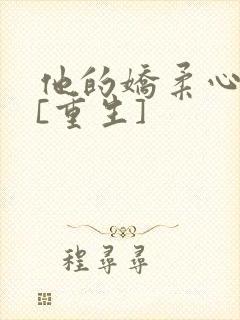 他的嬌柔心
[重生]
程尋尋